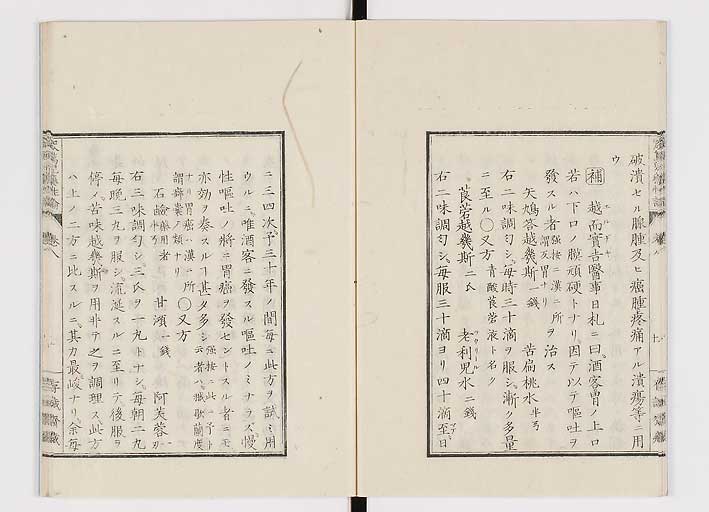 破潰セル腺腫及ヒ癌腫疼痛アル潰瘍等ニ用
ウ
補 越而實吉醫事日札ニ曰酒客胃ノ上口
エルトキ
若ハ下口ノ膜頑硬トナリ因テ以テ嘔吐ヲ
發スル者 強按ニ漢ニ所謂反胃ナリ ヲ治ス
矢鳩答越幾斯一錢 苦扁桃水半
右二味調匀シ毎時三十滴ヲ服シ漸ク多量
ニ至ル〇又方 青酸莨菪液ト名ク
莨菪越幾斯二氐 老利兒水二錢
右二味調匀シ毎服三十滴ヨリ四十滴至日
ニ三四次予三十年ノ間毎ニ此方ヲ試ミ用
ウルニ唯酒客ニ發スル嘔吐ノミナラズ慢
性嘔吐ノ將ニ胃癌ヲ發セントスル者ニモ
亦効ヲ奏スルヿ甚タ多シ
ナリ胃癌ハ漢ニ所謂ノ類ナリ 〇又方
石鹼 藥用者 甘汞一錢 阿芙蓉
右三味調匀シ三氐ヲ一丸トナシ毎朝二九
毎晩三丸ヲ服シ流涎スルニ至リテ後服ヲ
停ノ苦味越幾斯ヲ用井テ之ヲ調理ス此方
ハ上ノ二方ニ比スルニ其力最峻ナリ余毎